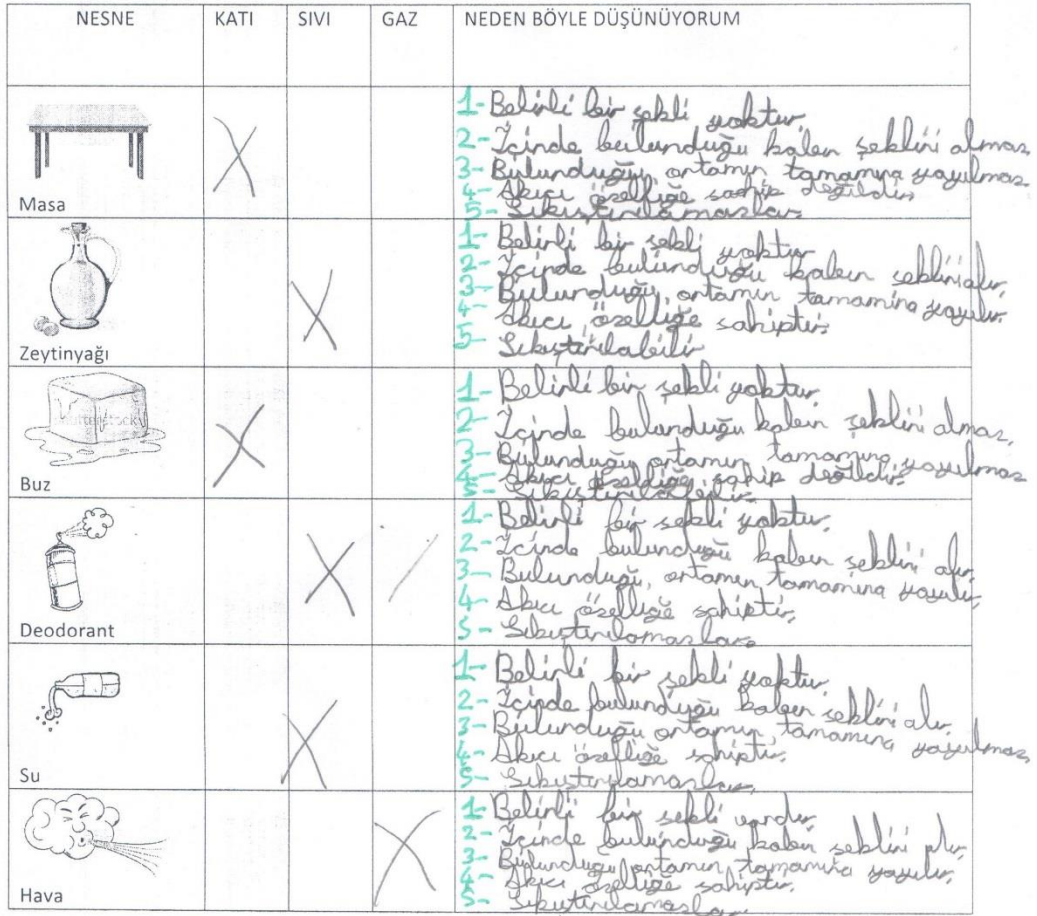 NESNE KATI SIVI GAZ NEDEN BÖYLE DÜŞÜNÜYORUM
Masa
1- Belirli bir şekli yoktur.
2- İçinde bulunduğu kabın şeklini almaz.
3- Bulunduğu ortamın tamamına yayılmaz
4- Akıcı özelliğe sahip değildir.
5- Sıkıştırılamazlar.
Zeytinyağı
1- Belirli bir şekli yoktur.
2- İçinde bulunduğu kabın şeklini alır.
3- Bulunduğu ortamın tamamına yayılır.
4- Akıcı özelliğe sahiptir.
5- Sıkıştırılabilir
Buz
1- Belirli bir şekli yoktur.
2- İçinde bulunduğu kabın şeklini almaz.
3- Bulunduğu ortamın tamamına yayılmaz
4- Akıcı özelliğe sahip değildir.
5- Sıkıştırılabilir.
Deodorant
1- Belirli bir şekli yoktur.
2- İçinde bulunduğu kabın şeklini alır.
3- Bulunduğu ortamın tamamına yayılır.
4- Akıcı özelliğe sahiptir.
5- Sıkıştırılamazlar.
Su
1- Belirli bir şekli yoktur.
2- İçinde bulunduğu kabın şeklini alır.
3- Bulunduğu ortamın tamamına yayılmaz
4- Akıcı özelliğe sahiptir.
5- Sıkıştırılamazlar.
Hava
1- Belirli bir şekli vardır.
2- İçinde bulunduğu kabın şeklini alır.
3- Bulunduğu ortamın tamamına yayılır.
4- Akıcı özelliğe sahiptir.
5- Sıkıştırılamazlar.